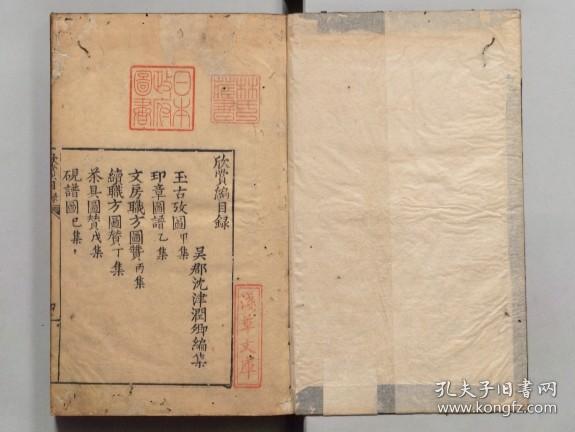 欣賞編目錄
吴郡沈津潤卿編集
玉古攷圖甲集
印章圖譜乙集
文房職方圖贊丙集
續職方圖贊丁集
茶具圖贊戊集
硯譜圖已集
日本
政府
圖書
林氏
藏書
淺草文庫
孔夫子旧书网
www.kongfz.com